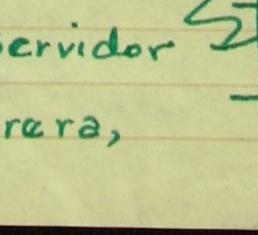 servidor
rara,